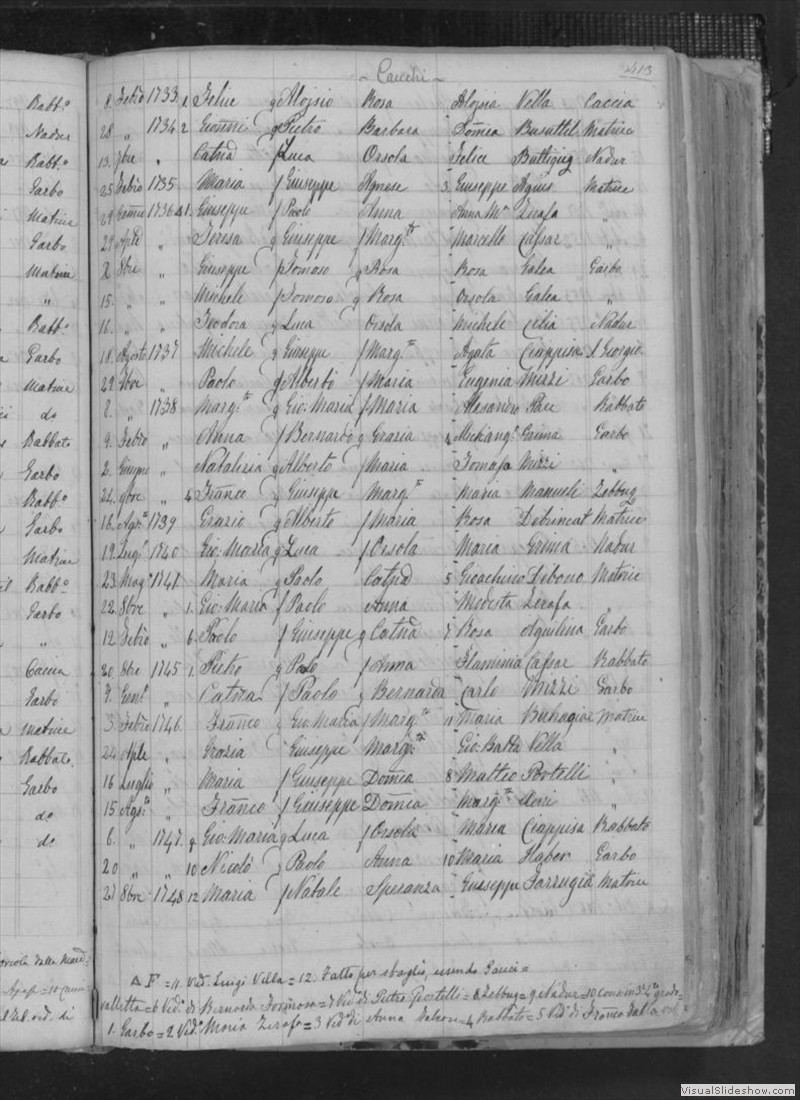 ~ Cacchi ~
413
8. Febro 1733. 1. Felice q Aloisio Rosa Aloisia Vella Caccia
28 " 1734 2 Gioanni q Pietro Barbara Domea Busuttil Matrice
13. 7bre " Catna f Luca Orsola Felice Buttigieg Nadur
25 Febro 1735 Maria f Giuseppe Agnese 3. Giuseppe Agius Matrice
29 1736 Δ 1. Giuseppe f Paolo Anna Anna Ma Zerafa "
29 Aple " Teresa q Giuseppe f Margta Marcello Cassar "
8bre " Giuseppe f Tomaso q Rosa Rosa Galea Garbo
15. " " Michele f Tomaso q Rosa Orsola Galea "
16. " " Teodora q Luca Orsola Michele Celia Nadur
18. Agosto 1737 Michele q Giuseppe f Margta Agata Ciappisa S. Georgio
29. 9bre " Paolo q Alberto f Maria Eugenia Mizzi Garbo
8. " 1738 Margta q Gio: Maria f Maria Alesandro Pace Rabbato
9. Febro " Anna f Bernardo q Grazia 4 Grima Garbo
2. Giugno " Natalizia q Alberto f Maria Tomasa Mizzi "
24. 9bre " 4. Franco q Giuseppe Margta Maria Manueli Zebbug
16. Agto 1739 Grazio q Alberto f Maria Rosa Debrincat Matrice
19. Lugo 1740 Gio: Maria q Luca f Orsola Maria Grima Nadur
23. Mago 1741 Maria q Paolo Catna 5 Gioachino Dibono Matrice
22. 8bre " 1. Gio: Maria f Paolo Anna Modesta Zerafa "
12. Febro " 6. Paolo f Giuseppe q Catna 7 Rosa Aquilina Garbo
30. 8bre 1745 1. Pietro q Paolo f Anna Flaminia Cassar Rabbato
7. Geno " f Paolo q Bernarda Carlo Mizzi Garbo
3. Febro 1746. Franco q Gio: Maria f Margta 11 Maria Buhagiar Matrice
24 Aple " Grazia Giuseppe Margta Gio: Batta Vella "
16 Luglio " Maria f Giuseppe Domea 8 Matteo Portelli "
15 Agto " Franco f Giuseppe Domea Margta "
6. " 1747. 9. Gio: Maria q Luca f Orsola Maria Ciappisa Rabbato
20 " " 10 Nicolò q Paolo Anna 10 Maria Haber Garbo
27 8bre 1748 12 Maria f Natale Speranza Giuseppe Farrugia Matrice
Δ F = 11. Vid. Luigi Vella = 12. Fatto per sbaglio, essendo Gauci =
valletta = 6 Vido di Bernarda Formosa = 7 Vida di Pietro Portelli = 8 Zebbug = 9 Nadur = 10 grado =
1. Garbo = 2 Vido Maria Zerafa = 3 Vido di Anna = 4 Rabbato = 5 Vido di Franca
Rabbo
Nadur
Rabbo
Garbo
Matrice
Garbo
Matrice
"
Rabbo
Garbo
Matrice
do
Rabbato
Garbo
Rabbo
Garbo
Matrice
Rabbo
Garbo
"
Caccia
Garbo
Matrice
Rabbato
Garbo
do
do
VisualSlideshow.com